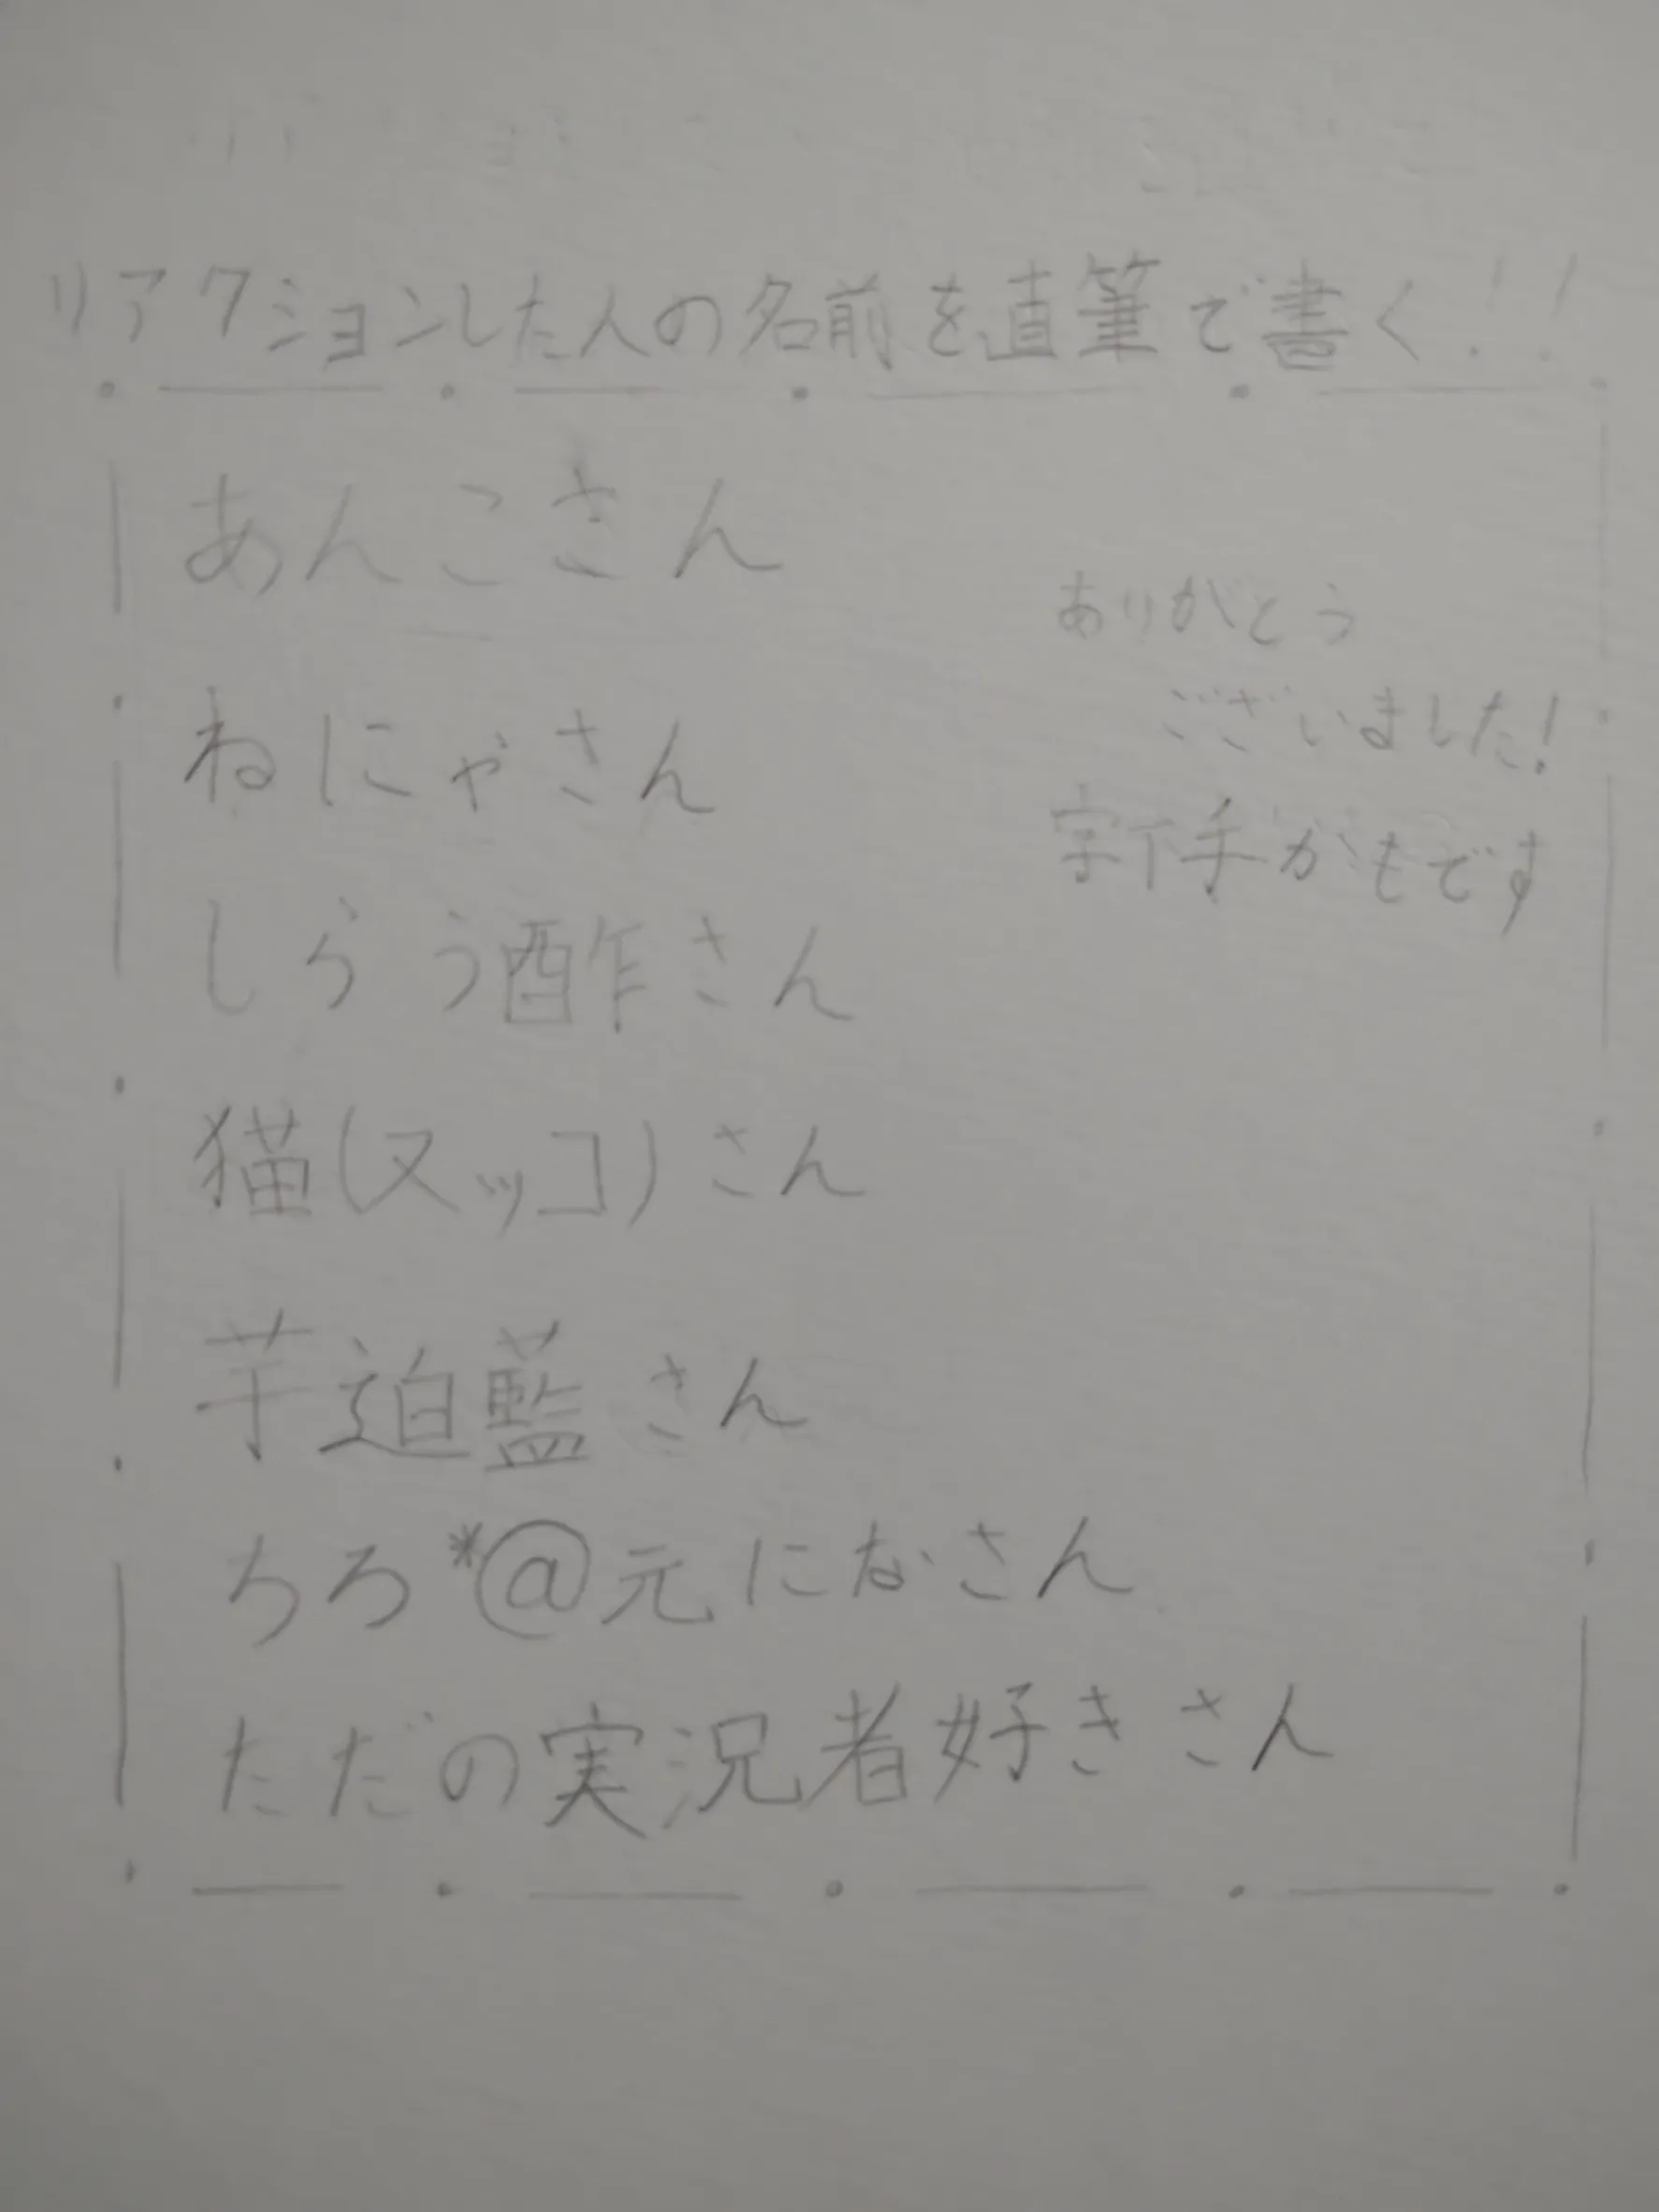 リアクションした人の名前を直筆で書く!!
あんこさん
ねにゃさん
しらう酢さん
猫(ヌッコ)さん
芋迫藍さん
ちろ*@元になさん
ただの実況者好きさん
ありがとう
ございました!
字下手かもです